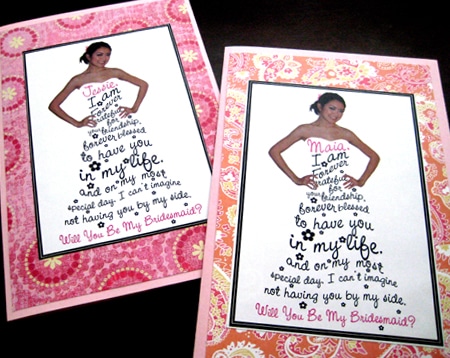 Jessie.
I am
forever
grateful
for
your
friendship.
forever blessed
to have you
in my life.
and on my most
special day. I can't imagine
not having you by my side.
Will You Be My Bridesmaid?
Maia.
I am
forever
grateful
for
your
friendship.
forever blessed
to have you
in my life.
and on my most
special day. I can't imagine
not having you by my side.
Will You Be My Bridesmaid?